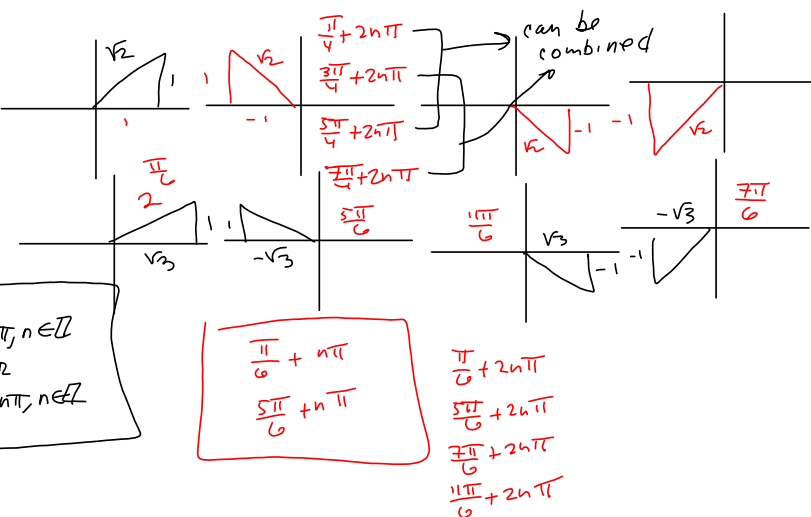 √2
1
1
1
√2
-1
π/4 + 2nπ
3π/4 + 2nπ
5π/4 + 2nπ
7π/4 + 2nπ
can be
combined
√2
-1
-1
√2
π/6
2
1
√3
1
-√3
5π/6
11π/6
√3
-1
-√3
-1
7π/6
π, n∈ℤ
nπ, n∈ℤ
π/6 + nπ
5π/6 + nπ
π/6 + 2nπ
5π/6 + 2nπ
7π/6 + 2nπ
11π/6 + 2nπ